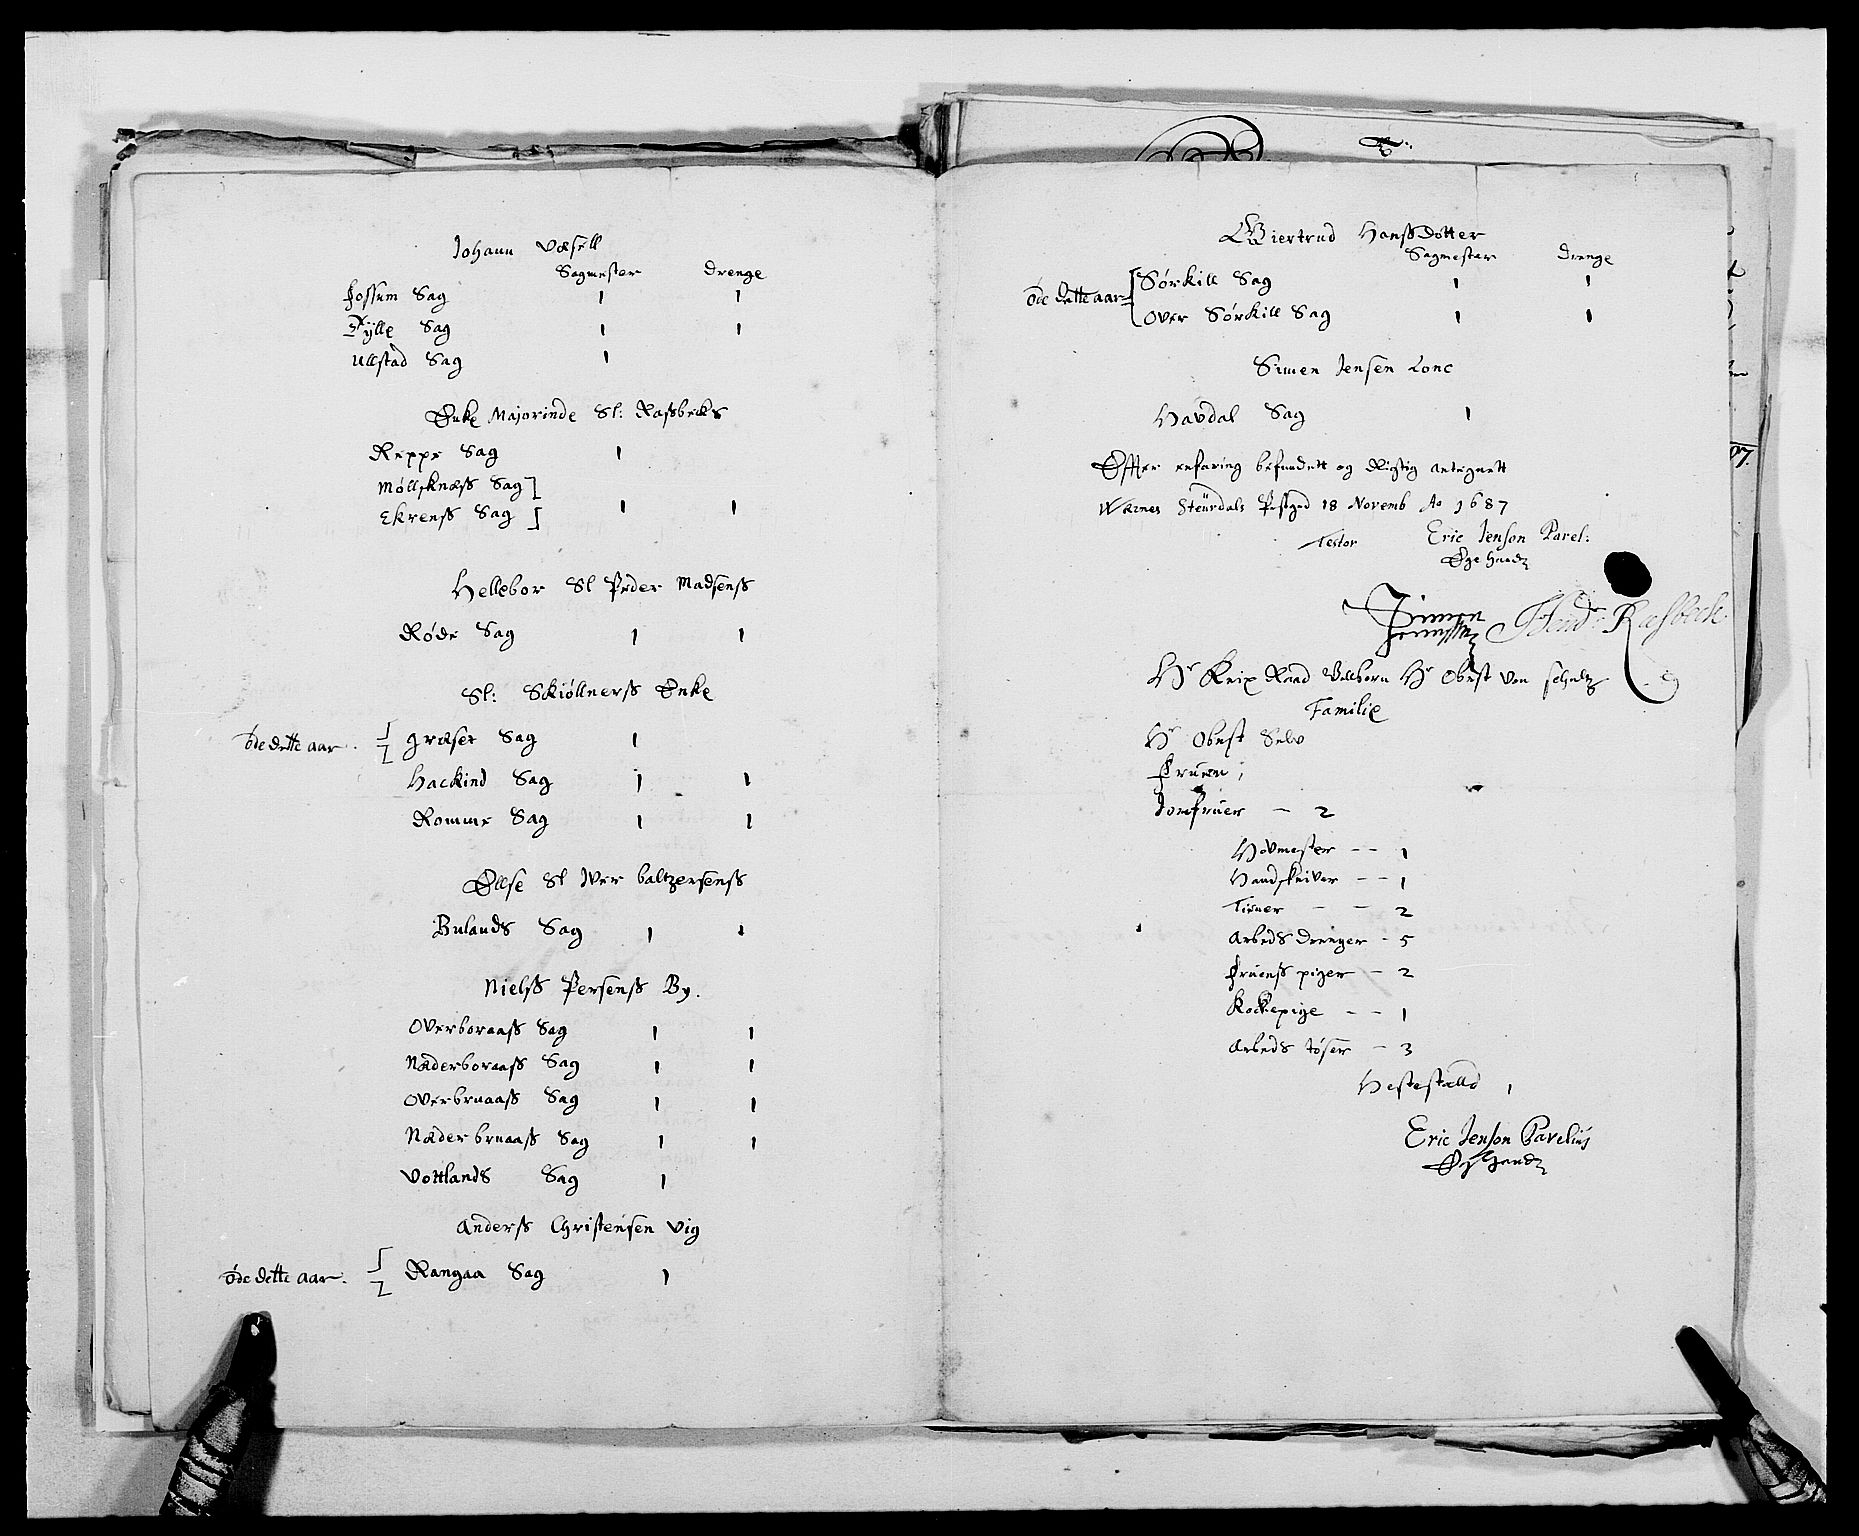 Johann Væsell
Sagmester Drenge
Fossum Sag 1 1
Fylle Sag 1 1
Ullstad Sag 1
Enke Majorinde Sl: Rassbecks
Reppe Sag 1
Møllsknæss Sag ]
Ekrenss Sag ] 1 1
Hellebor Sl Peder Madsenss
Røde Sag 1 1
Sl: Skiøllnerss Enke
øde dette aar. græset Sag 1
Hackind Sag 1 1
Romme Sag 1 1
Ellse Sl Iver baltzersenss
Bulands Sag 1 1
Nielss Persenss By.
Overboraass Sag 1 1
Næderboraass Sag 1 1
Overbruaass Sag 1 1
Næderbruaass Sag 1 1
Vottlands Sag 1
Anderss Christensen Vig
øde dette aar. Rangaa Sag 1
Giertrud Hanssdotter
Sagmester Drenge
øde dette aar Sørkill Sag 1 1
Over Sørkill Sag 1 1
Simen Jensen Lonc
Havdal Sag 1
Effter erfaring befundett og Rigtig antegnett
Wærnes Steurdals Prestgrd 18 Novemb Ao 1687
Testor Eric Jenson Pavel:
Ege haand
Simen Hendr Rasbeck
Jenssen
Hr Krix Raad Vellborn Hr Obrst von schultz
Familie
Hr Obrst Selv
Fruen 1
Jomfruer - 2
Hovmester -- 1
Handskriver -- 1
Tiener - - 2
Arbeds drenger - 5
Fruenss piger - 2
Kockepige -- 1
Arbeds tøser - 3
Hestestalld 1
Eric Jenson Pavelius
Eg Haand